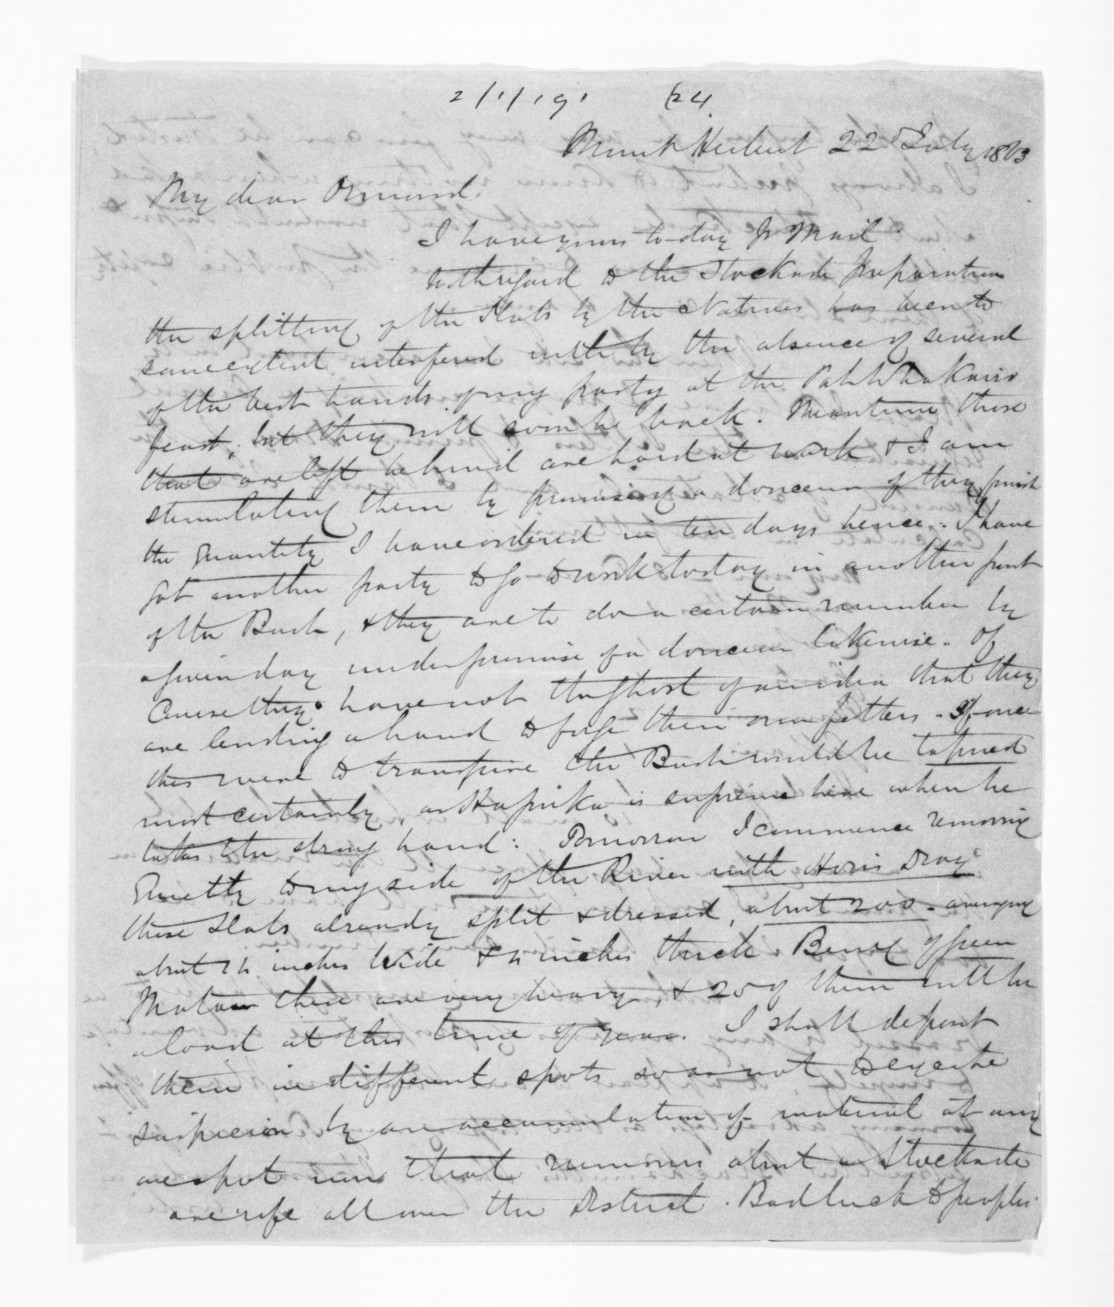 2/1/191 624
Mount Herbert 22d July 1863
My dear Ormond.
I have yours to-day pr Mail
With regard to the Stockade preparations
the splitting of the Slabs by the Natives has been to
some extent interfered with by the absence of several
of the best hands going party at the Pah Whakairo
feast, but they will soon be back. Meantime those
that are left behind are hard at work & I am
stimulating them by promising a douceur if they finish
the quantity I have ordered in ten days hence. I have
got another party to go to work today in another part
of the Bush, & they are to do a certain number by
a given day under promise of a douceur likewise. Of
course they have not the ghost of an idea that they
are lending a hand to forge their own fetters. If once
this were to transpire the Bush would be tapued
most certainly, as Hapuka is supreme here when he
takes the strong hand: Tomorrow I commence removing
quietly to my side of the River with Hori's Dray
those Slabs already split & dressed, about 200. averaging
about 14 inches wide & 4 inches thick. Being of green
Matai these are very heavy, & 25 of them will be
a load at this time of year. I shall deposit
them in different spots so as not to excite
suspicion by an accumulation of material at any
one spot, that rumours about a Stockade
are rife all over the District. Bad luck to peoples